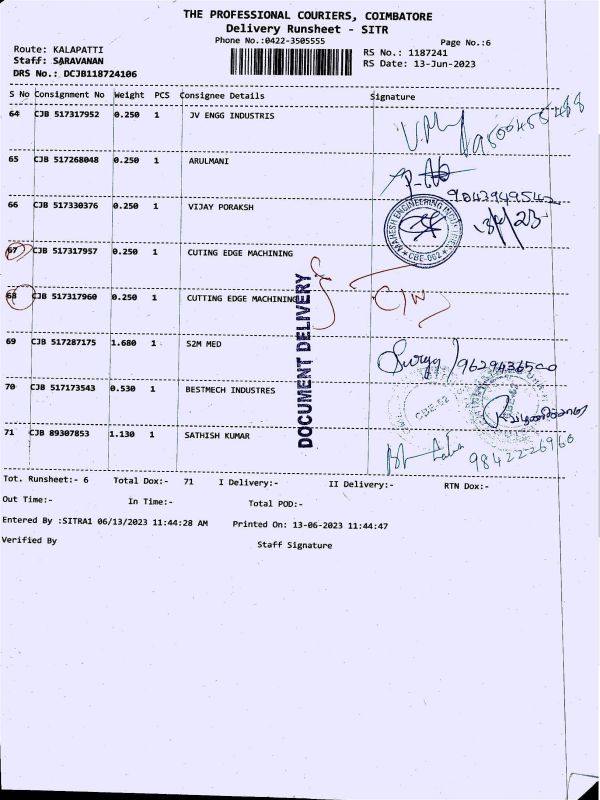 THE PROFESSIONAL COURIERS, COIMBATORE
Delivery Runsheet - SITR
Phone No.:0422-3505555
Page No.:6
Route: KALAPATTI
Staff: SARAVANAN
DRS No.: DCJB118724106
RS No.: 1187241
RS Date: 13-Jun-2023
S No Consignment No Weight PCS Consignee Details Signature
64 CJB 517317952 0.250 1 JV ENGG INDUSTRIS
65 CJB 517268048 0.250 1 ARULMANI
66 CJB 517330376 0.250 1 VIJAY PORAKSH
MAHESH ENGINEERING INDUSTRIES
CBE-062
67 CJB 517317957 0.250 1 CUTING EDGE MACHINING
68 CJB 517317960 0.250 1 CUTTING EDGE MACHINING
DOCUMENT DELIVERY
69 CJB 517287175 1.680 1 S2M MED
Surya 9629436500
70 CJB 517173543 0.530 1 BESTMECH INDUSTRES
CBE-62
71 CJB 89307853 1.130 1 SATHISH KUMAR
9842226960
Tot. Runsheet:- 6 Total Dox:- 71 I Delivery:- II Delivery:- RTN Dox:-
Out Time:- In Time:- Total POD:-
Entered By :SITRA1 06/13/2023 11:44:28 AM Printed On: 13-06-2023 11:44:47
Verified By Staff Signature